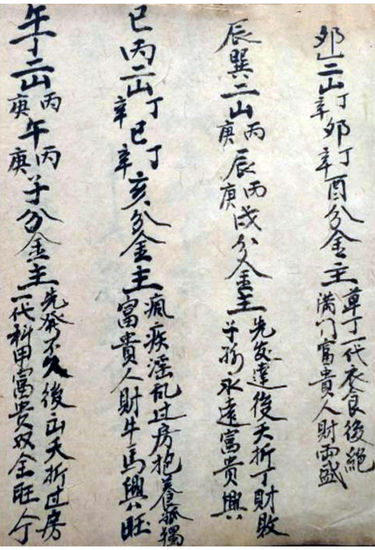 夘乙二山丁辛夘丁辛酉分金主草丁一代衣食後絕
滿门富貴人財両盛
辰巽二山丙庚辰丙庚戌分金主先发達後夭折丁財敗
子孫永遠富贵興
巳丙二山丁辛巳丁辛亥分金主瘋疾淫乱过房抱養孤獨
富貴人財牛馬興旺
午丁二山丙庚午丙庚子分金主先發不久後出夭折过房
一代科甲富貴双全旺